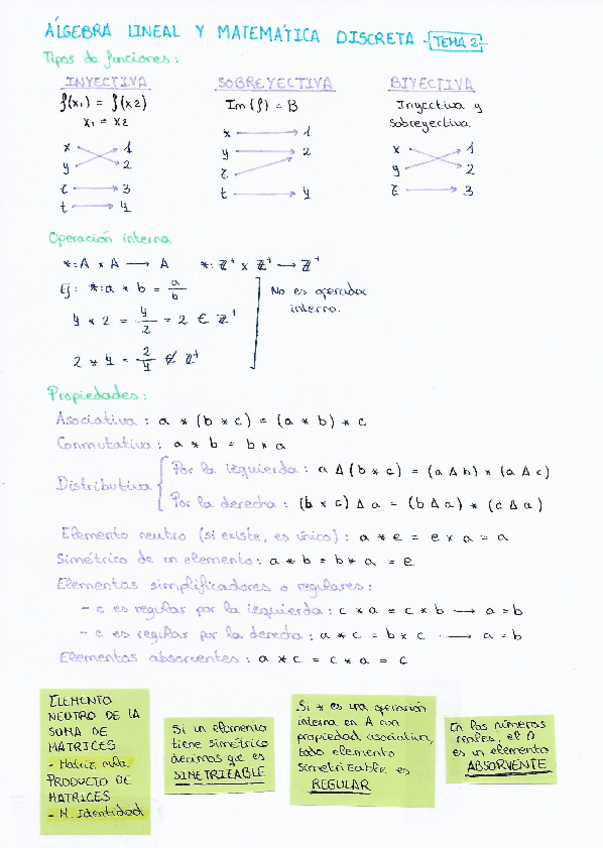 ÁLGEBRA LINEAL Y MATEMÁTICA DISCRETA - TEMA 2 -
Tipos de funciones:
INYECTIVA
f(x₁) = f(x2)
x₁ = x₂
x 1
y 2
z 3
t 4
SOBREYECTIVA
Im{f} = B
x 1
y 2
z
t 4
BIYECTIVA
Inyectiva y
Sobreyectiva.
x 1
y 2
z 3
Operación interna
*: A x A → A *: Z⁺ x Z⁺ → Z⁺
Ej: *: a * b = a/b
4 * 2 = 4/2 = 2 ∈ Z⁺
2 * 4 = 2/4 ∉ Z⁺
No es operador
interno.
Propiedades:
Asociativa: a * (b * c) = (a * b) * c
Conmutativa: a * b = b * a
Distributiva
Por la izquierda: a Δ (b * c) = (a Δ b) * (a Δ c)
Por la derecha: (b * c) Δ a = (b Δ a) * (c Δ a)
Elemento neutro (si existe, es único): a * e = e * a = a
Simétrico de un elemento: a * b = b * a = e
Elementos simplificadores o regulares:
- c es regular por la izquierda: c * a = c * b → a = b
- c es regular por la derecha: a * c = b * c → a = b
Elementos absorventes: a * c = c * a = c
ELEMENTO
NEUTRO DE LA
SUMA DE
MATRICES
- Matriz nula.
PRODUCTO DE
MATRICES
- M. Identidad
Si un elemento
tiene simétrico
decimos que es
SIMETRIZABLE
Si * es una operación
interna en A con
propiedad asociativa,
todo elemento
simetrizable es
REGULAR
En los números
reales, el 0
es un elemento
ABSORVENTE